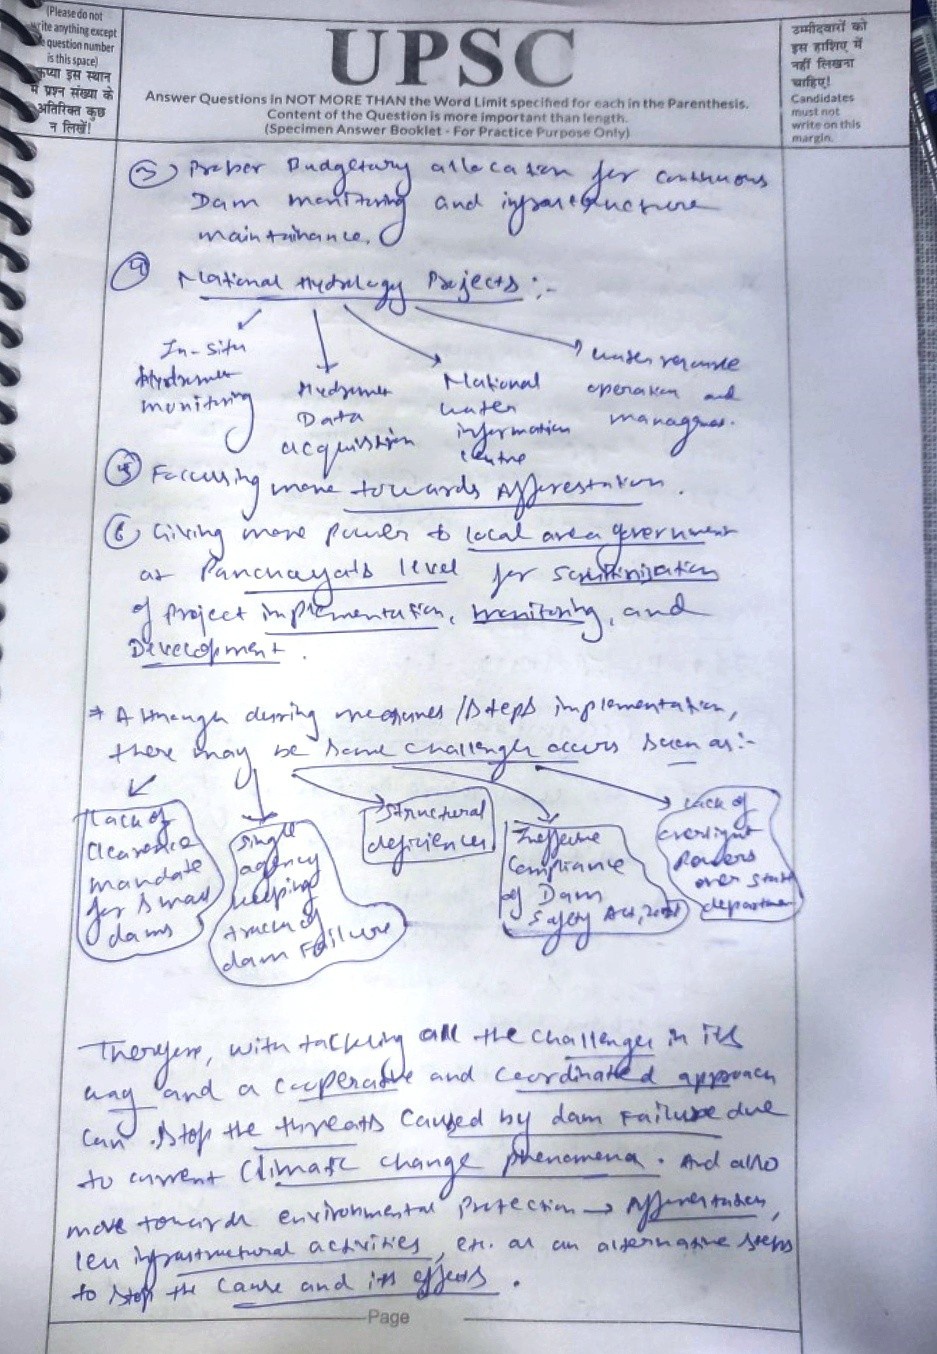 (Please do not
write anything except
question number
is this space)
कृपया इस स्थान
में प्रश्न संख्या के
अतिरिक्त कुछ
न लिखें!
UPSC
Answer Questions in NOT MORE THAN the Word Limit specified for each in the Parenthesis.
Content of the Question is more important than length.
(Specimen Answer Booklet - For Practice Purpose Only)
उम्मीदवारों को
इस हाशिए में
नहीं लिखना
चाहिए!
Candidates
must not
write on this
margin.
③ Proper Budgetary allocation for continuous
Dam monitoring and infrastructure
maintainance.
④ National Hydrology Projects :-
In-situ
Hydromet
monitoring
Hydromet
Data
acquisition
National
water
information
centre
water resource
operation and
managmet.
⑤ Foccusing more towards Afforestation.
⑥ Giving more power to local area government
at Panchayats level for scrutinization
of project implementation, monitoring, and
Development.
⇒ Although during measures / steps implementation,
there may be some challenges occurs such as :-
Lack of
Clearance
mandate
for small
dams
Single
agency
keeping
track of
dam Failure
structural
deficiencies
Ineffective
Compliance
of Dam
Safety Act, 2021
Lack of
oversight
Powers
over state
department
Therefore, with tackling all the challenges in its
way and a cooperative and coordinated approach
can stop the threats caused by dam Failure due
to current climatic change phenomena. And also
move towards environmental protection → Afforestation,
less infrastructural activities, etc. as an alternative steps
to stop the cause and its effects.
Page